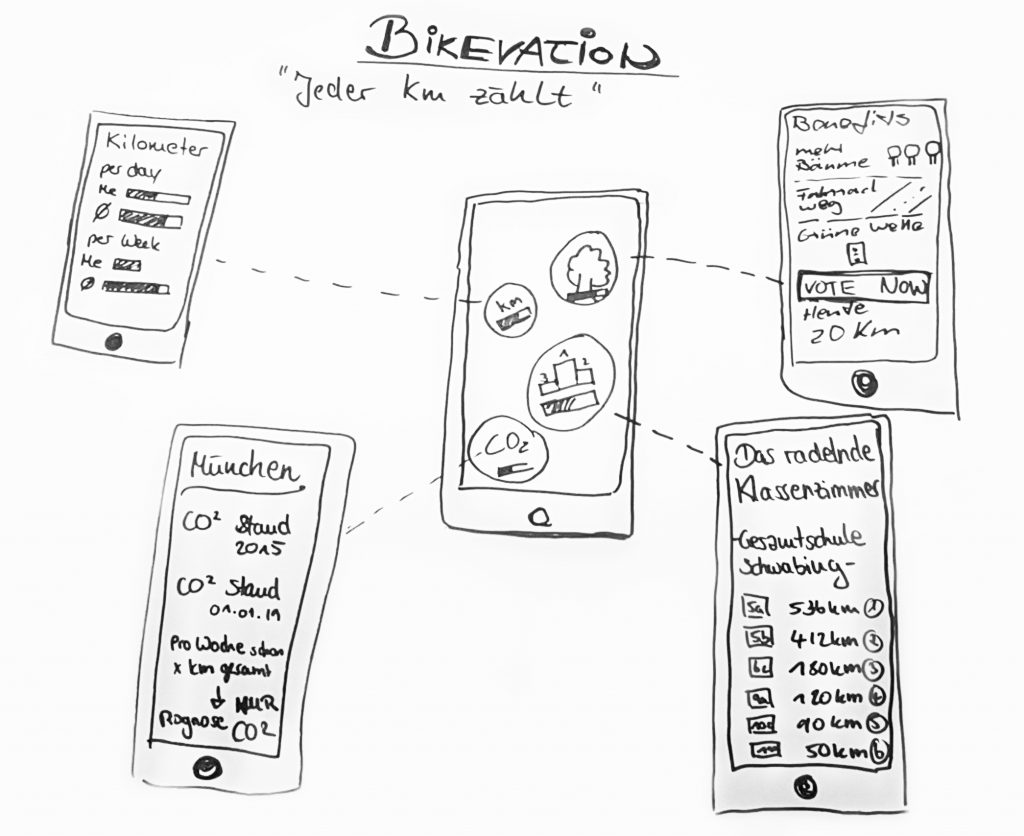 BIKEVATION
"Jeder km zählt"
Kilometer
per day
Me
Ø
per Week
Me
Ø
km
1
2
3
CO2
Benefits
mehr
Bäume
Fahrrad
weg
Grüne Welle
VOTE NOW
Heute
20 Km
München
CO² Stand
2015
CO² Stand
01.01.19
Pro Woche schon
x km gesamt
↓ NUR
Prognose CO²
Das radelnde
Klassenzimmer
-Gesamtschule
Schwabing-
5a 536km 1
5b 412km 2
6c 180km 3
9a 120km 4
10c 90km 5
50km 6